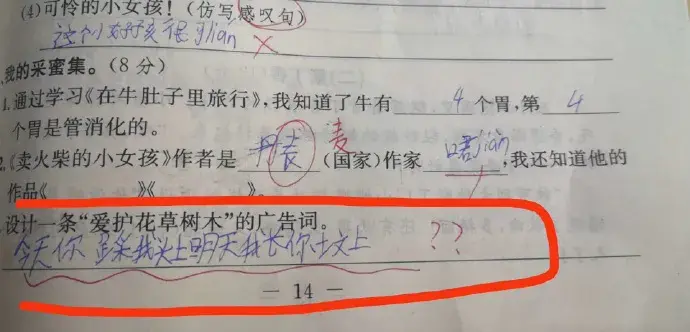 (4)可怜的小女孩！(仿写感叹句)
孩很可lian
我的采蜜集。(8 分)
1.通过学习《在牛肚子里旅行》,我知道了牛有 4 个胃,第 4
个胃是管消化的。
麦
2.《卖火柴的小女孩》作者是 丹 (国家)作家 jian ,我还知道他的
作品《 》《 》。
设计一条“爱护花草树木”的广告词。
今天你踩我头上明天我长你土文上 ??
— 14 —